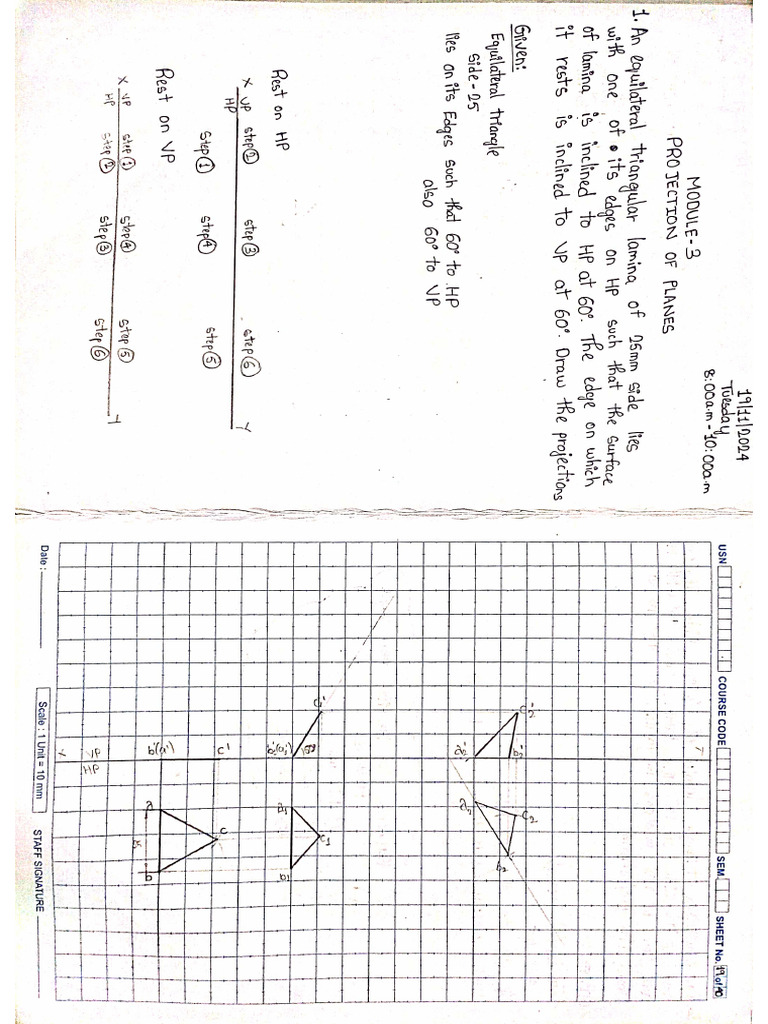 19/11/2024
Tuesday
8:00a.m - 10:00a.m
MODULE-3
PROJECTION OF PLANES
1. An equilateral triangular lamina of 25mm side lies
with one of its edges on HP such that the surface
of lamina is inclined to HP at 60°. The edge on which
it rests is inclined to VP at 60°. Draw the projections
Given:
Equilateral triangle
side-25
lies on its Edges such that 60° to HP
also 60° to VP
Rest on HP
step② step③ step⑥
X VP Y
HP
step① step④ step⑤
Rest on VP
step① step④ step⑤
X VP Y
HP
step② step③ step⑥
USN COURSE CODE SEM SHEET No.
c2'
a2' b2'
a2 c2
b2
c1'
b1'(a1')
a1 c1
b1
c'
b'(a')
X VP Y
HP
a c
25
b
Date : Scale : 1 Unit = 10 mm STAFF SIGNATURE